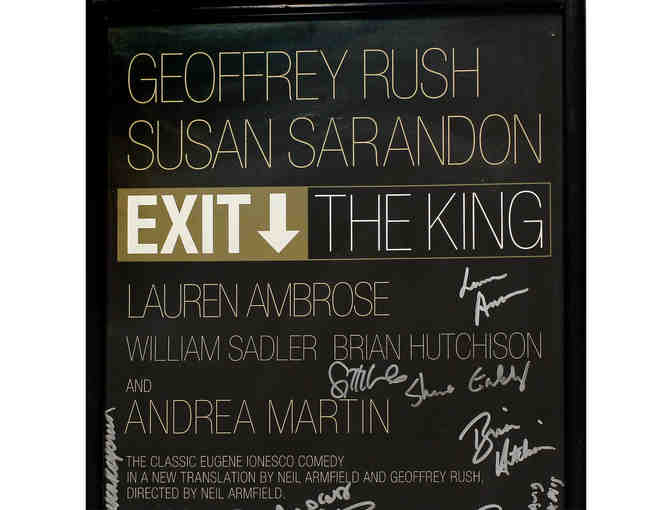 GEOFFREY RUSH
SUSAN SARANDON
EXIT THE KING
LAUREN AMBROSE
WILLIAM SADLER BRIAN HUTCHISON
AND
ANDREA MARTIN
THE CLASSIC EUGENE IONESCO COMEDY
IN A NEW TRANSLATION BY NEIL ARMFIELD AND GEOFFREY RUSH,
DIRECTED BY NEIL ARMFIELD.